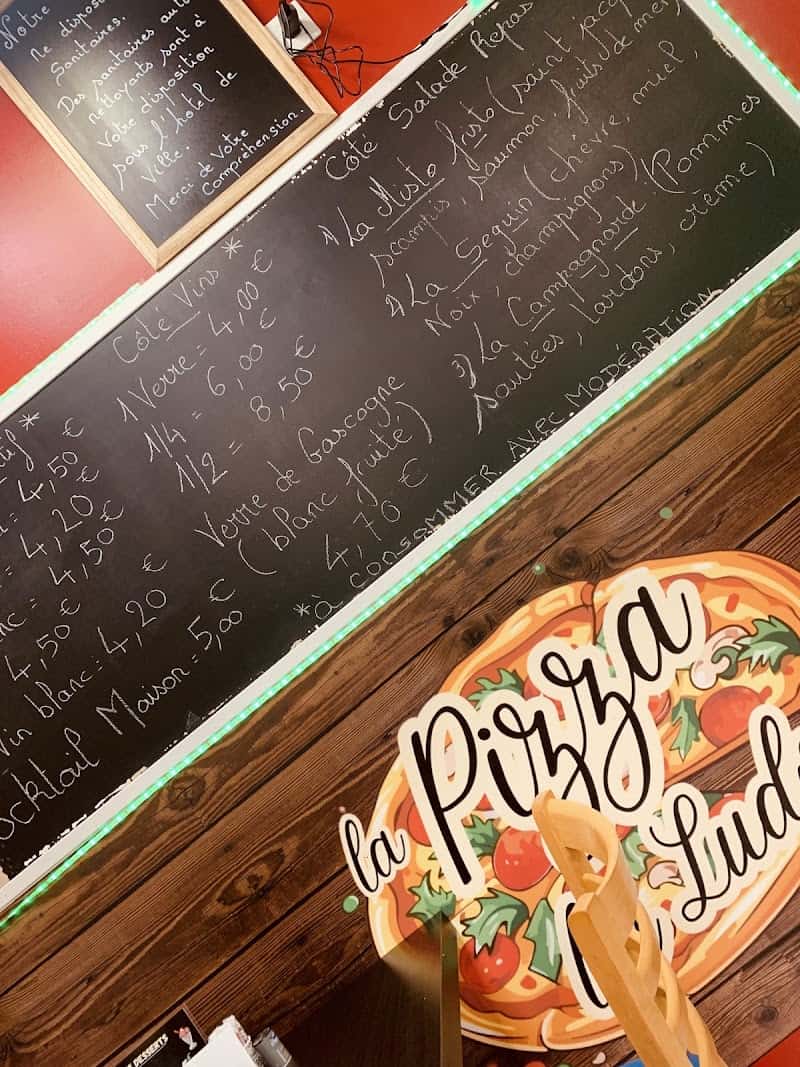 Notre
ne dispose
Sanitaires.
Des sanitaires auto
nettoyants sont à
votre disposition
sous l'hotel de
Ville.
Merci de Votre
Compréhension.
4,50 €
= 4,20 €
= 4,50 €
4,50 €
Vin blanc = 4,20 €
Cocktail Maison = 5,00 €
Côté Vins *
1 Verre = 4,00 €
1/4 = 6,00 €
1/2 = 8,50 €
Verre de Gascogne
(blanc fruité)
4,70 €
Côté Salade Repas
1) La Misto fristo (saint jacq
scampis, saumon, fruits de mer
2) La Seguin (chèvre, miel,
Noix, champignons)
3) La Campagnarde (Pommes
sautées, lardons, crème)
*à CONSOMMER AVEC MODÉRATION
la Pizza
Lud
DESSERTS